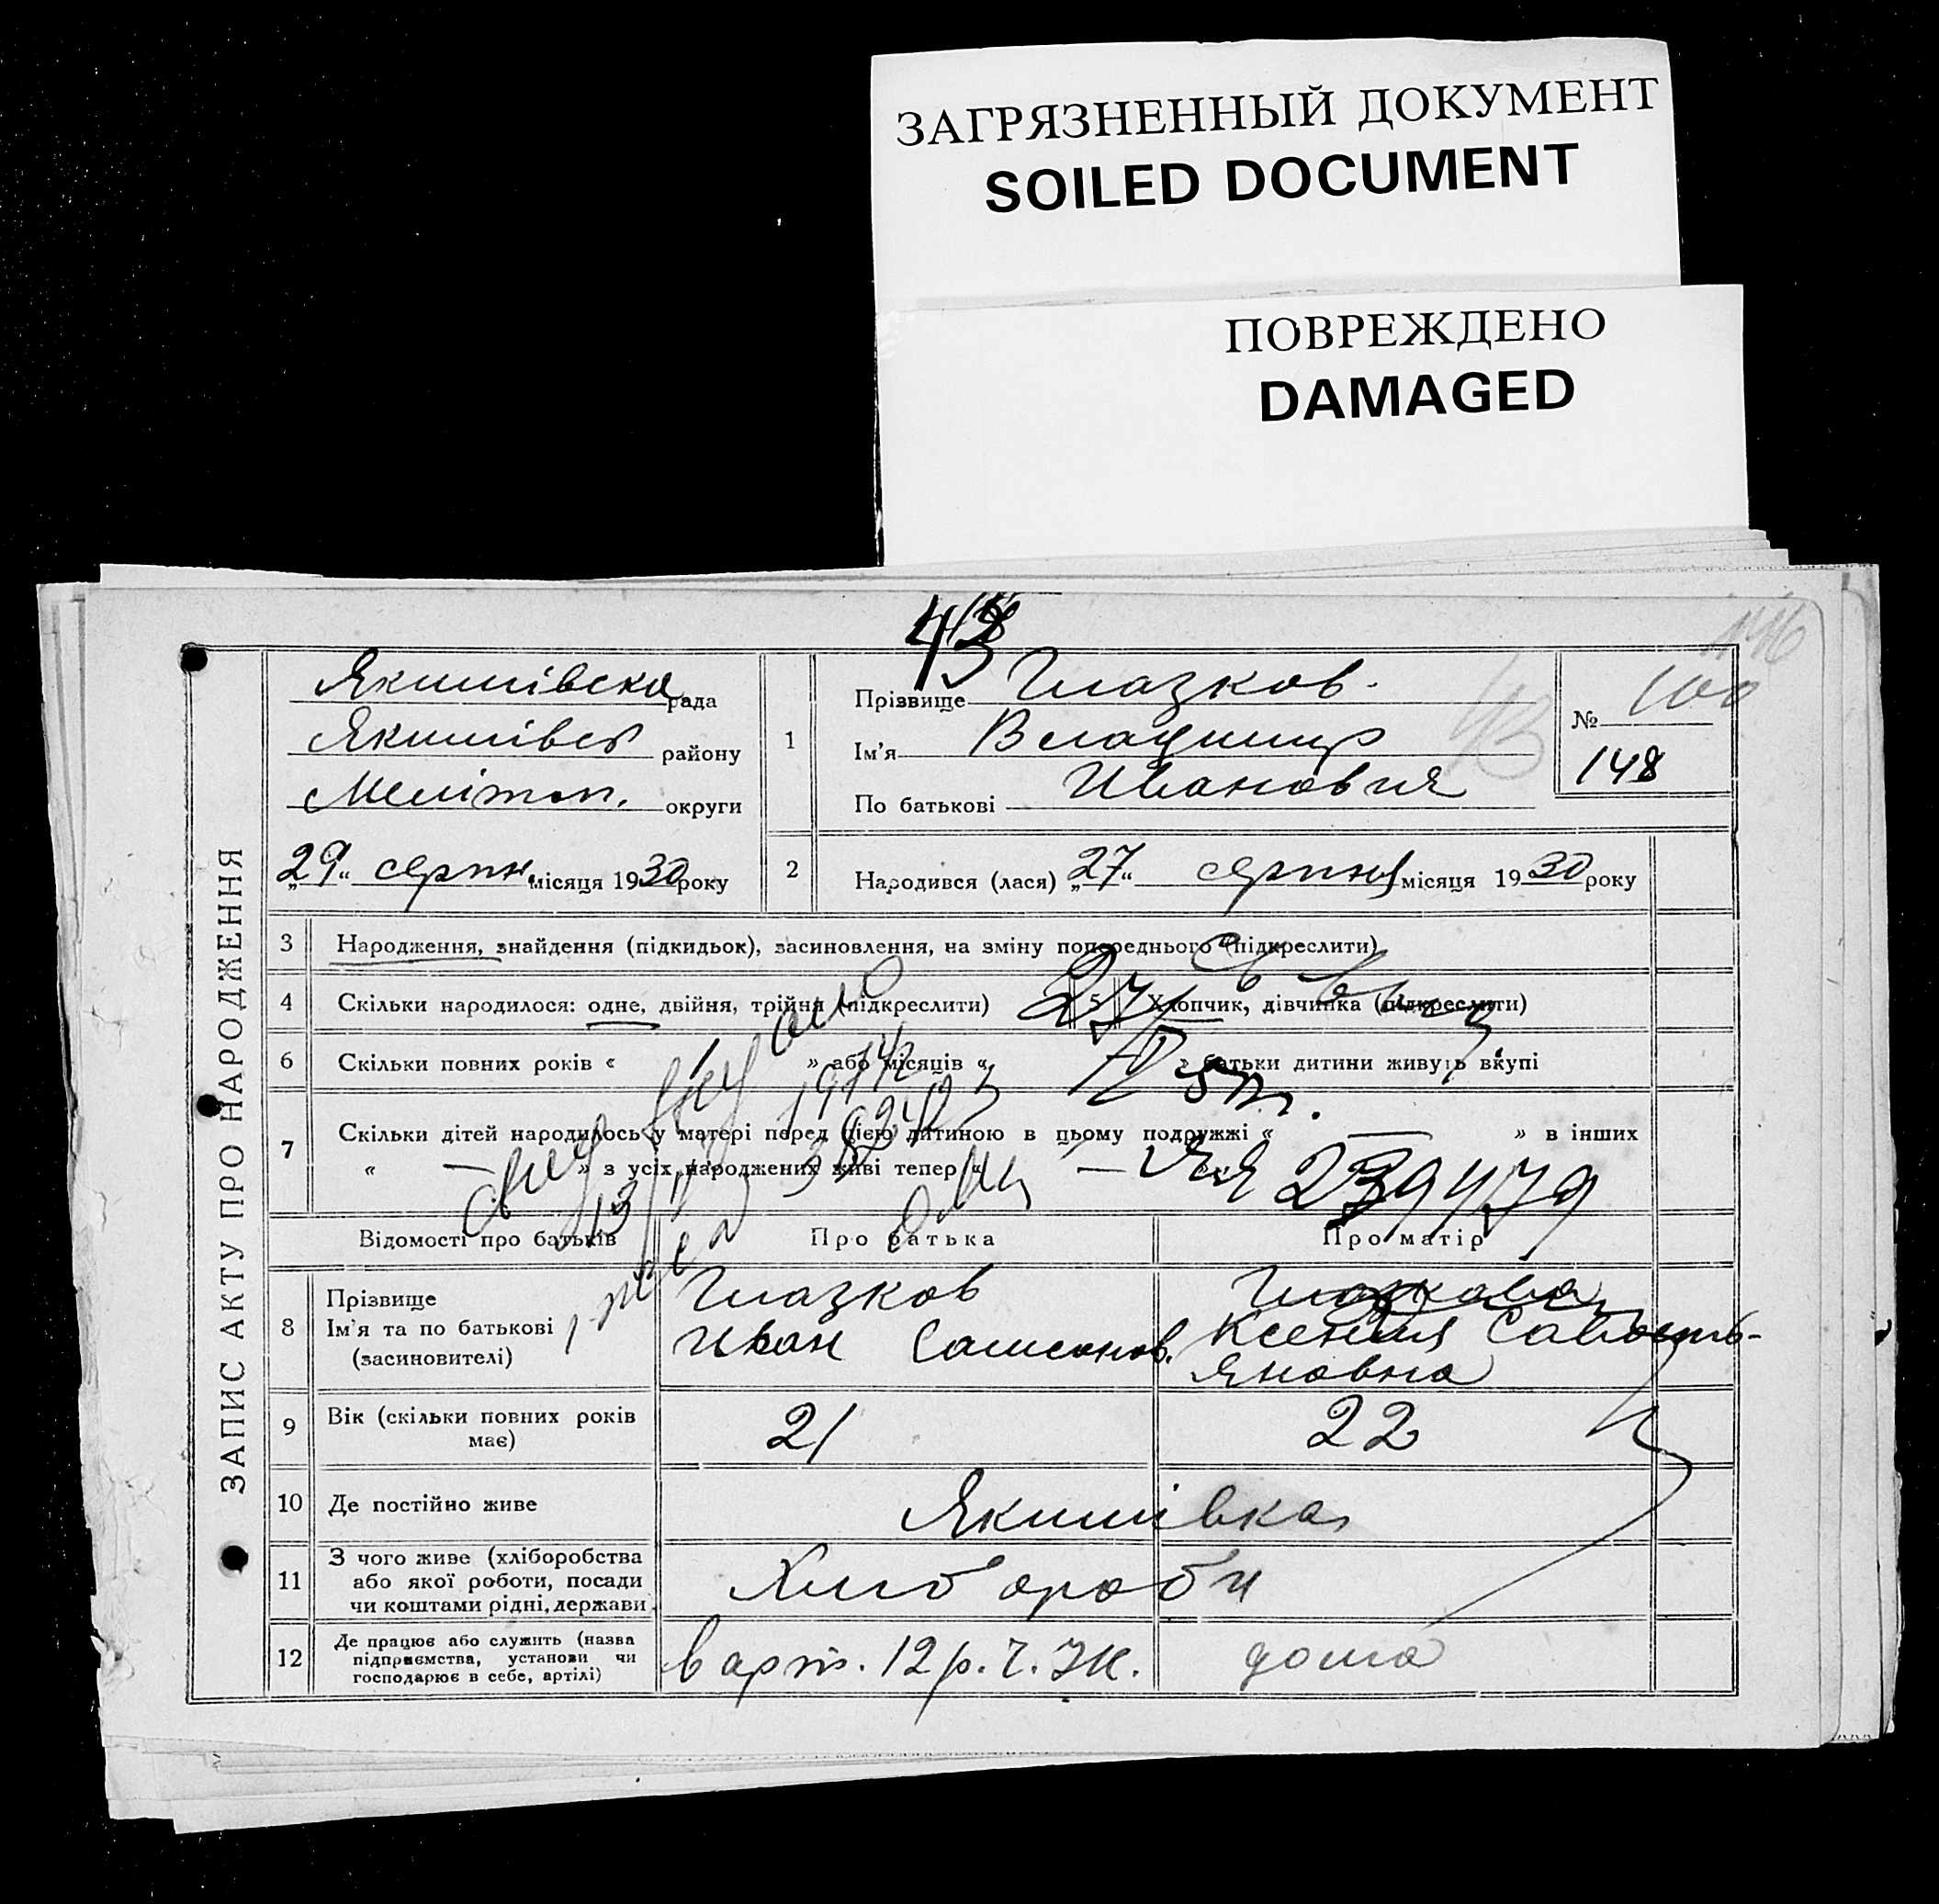 ЗАГРЯЗНЕННЫЙ ДОКУМЕНТ
SOILED DOCUMENT
ПОВРЕЖДЕНО
DAMAGED
43
ЗАПИС АКТУ ПРО НАРОДЖЕННЯ
Якимівска рада
Якимівск району
Мелітоп. округи
„29“ серпн. місяця 1930 року
1
Прізвище Глазков
Ім'я Владимир
По батькові Иванович
№ 100
148
2
Народився (лася) „27“ серпня місяця 1930 року
3 Народження, знайдення (підкидьок), засиновлення, на зміну попереднього (підкреслити)
4 Скільки народилося: одне, двійня, трійня (підкреслити) 5 Хлопчик, дівчинка (підкреслити)
6 Скільки повних років « 1 » або місяців « » батьки дитини живуть вкупі
7 Скільки дітей народилось у матері перед цією дитиною в цьому подружжі « — » в інших
« — » з усіх народжених живі тепер « —
239479
Відомості про батьків Про батька Про матір
8 Прізвище
Ім'я та по батькові
(засиновителі)
Глазков
Иван Самсонов.
Глазкова
Ксения Савасть-
яновна
9 Вік (скільки повних років має) 21 22
10 Де постійно живе Якимівка
11 З чого живе (хліборобства
або якої роботи, посади
чи коштами рідні, держави
Хлібороби
12 Де працює або служить (назва
підприємства, установи чи
господарює в себе, артілі)
в арт. 12 р. дома